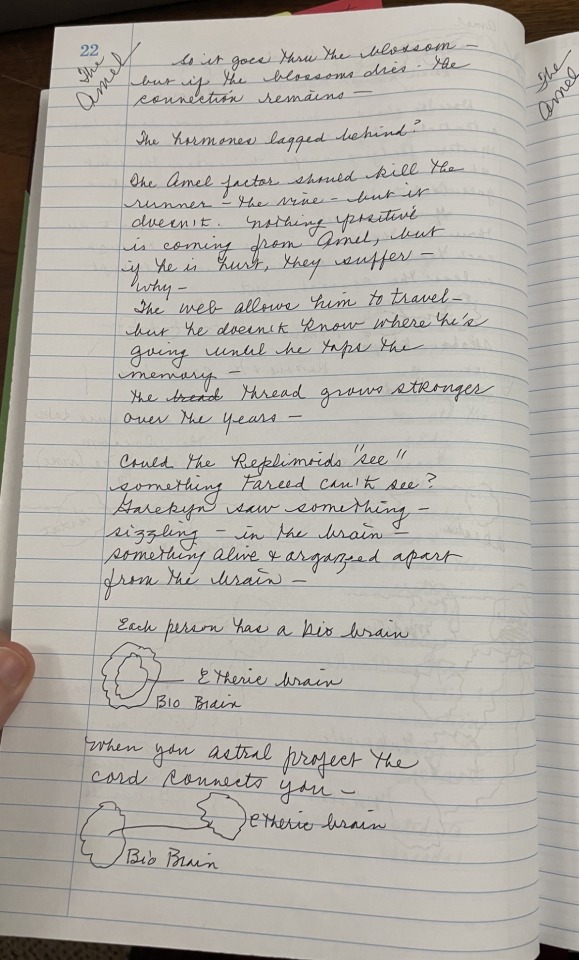 22
The
Amel
So it goes thru the blossom –
but if the blossoms dies - the
connection remains –
The hormones lagged behind?
The Amel factor should kill the
runner – the vine – but it
doesn't. Nothing positive
is coming from Amel, but
if he is hurt, they suffer –
Why –
The web allows him to travel –
but he doesn't know where he's
going until he taps the
memory –
The tread thread grows stronger
over the years –
Could the Replimoids "see"
something Fareed can't see?
Garekyn saw something –
sizzling – in the brain –
something alive & organzed apart
from the brain –
Each person has a bio brain
Etheric brain
Bio Brain
When you astral project the
cord connects you –
Etheric brain
Bio Brain
The
Amel